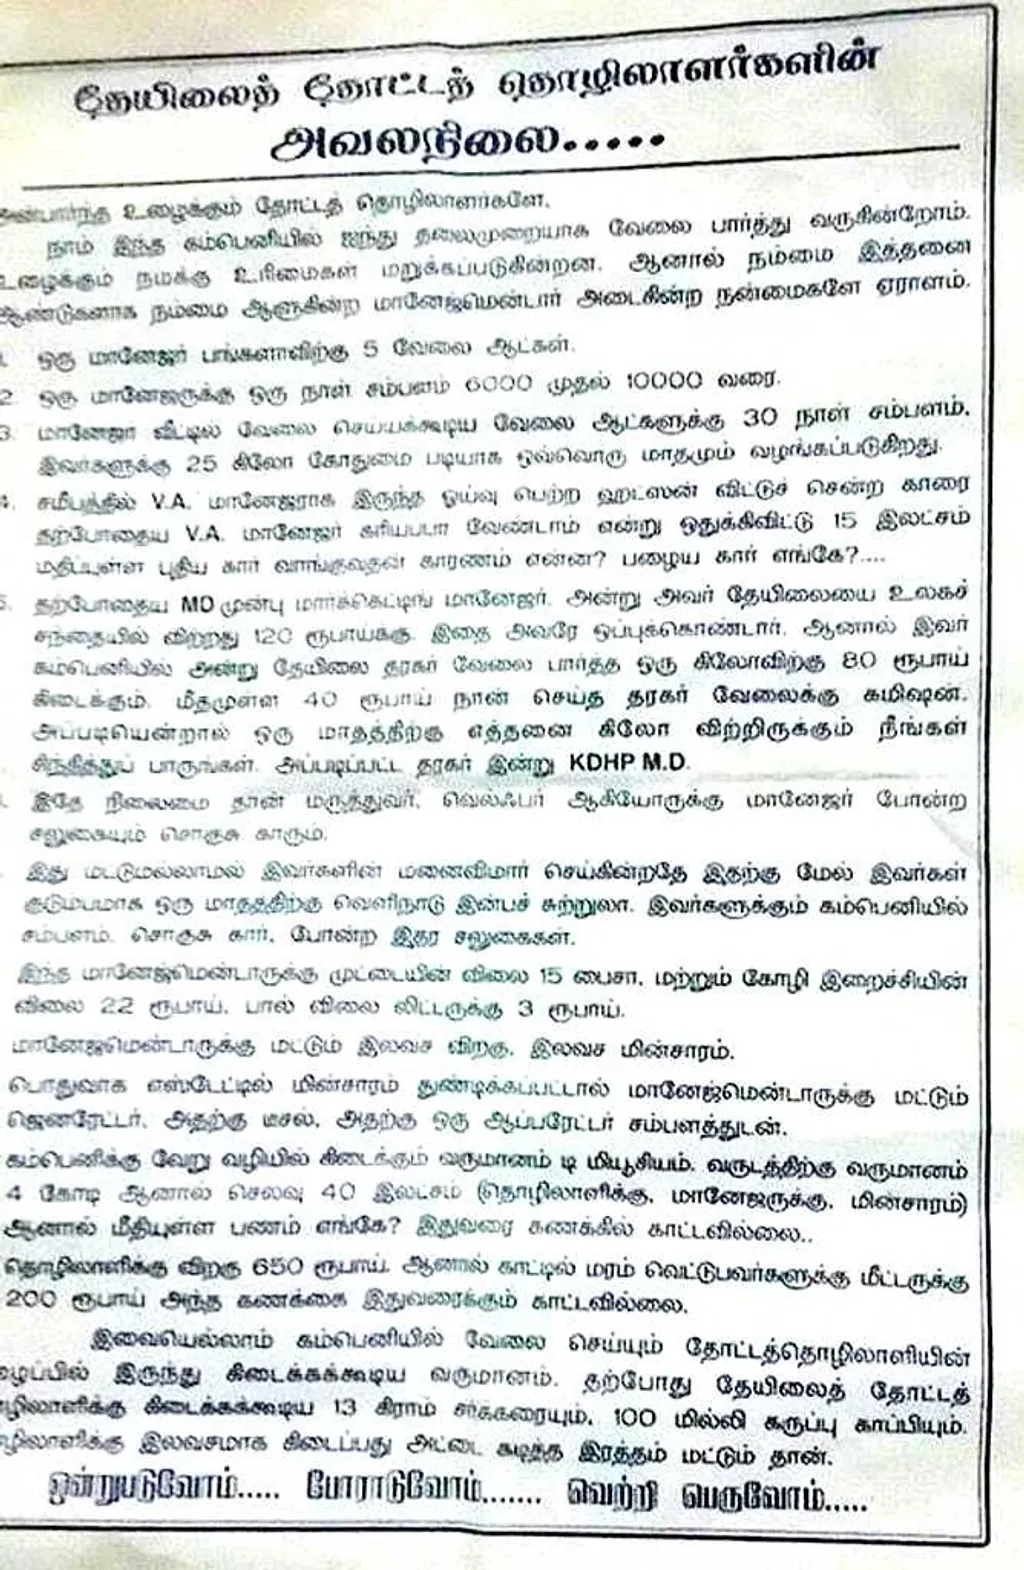 தேயிலைத் தோட்டத் தொழிலாளர்களின்
அவலநிலை.....
அன்பார்ந்த உழைக்கும் தோட்டத் தொழிலாளர்களே,
நாம் இந்த கம்பெனியில் ஐந்து தலைமுறையாக வேலை பார்த்து வருகின்றோம்.
உழைக்கும் நமக்கு உரிமைகள் மறுக்கப்படுகின்றன. ஆனால் நம்மை இத்தனை
ஆண்டுகளாக நம்மை ஆளுகின்ற மானேஜ்மென்டார் அடைகின்ற நன்மைகளே ஏராளம்.
1. ஒரு மானேஜர் பங்களாவிற்கு 5 வேலை ஆட்கள்.
2. ஒரு மானேஜருக்கு ஒரு நாள் சம்பளம் 6000 முதல் 10000 வரை.
3. மானேஜர் வீட்டில் வேலை செய்யக்கூடிய வேலை ஆட்களுக்கு 30 நாள் சம்பளம்,
இவர்களுக்கு 25 கிலோ கோதுமை படியாக ஒவ்வொரு மாதமும் வழங்கப்படுகிறது.
4. சமீபத்தில் V.A. மானேஜராக இருந்த ஓய்வு பெற்ற ஹட்ஸன் விட்டுச் சென்ற காரை
தற்போதைய V.A. மானேஜர் கரியப்பா வேண்டாம் என்று ஒதுக்கிவிட்டு 15 இலட்சம்
மதிப்புள்ள புதிய கார் வாங்குவதன் காரணம் என்ன? பழைய கார் எங்கே?....
5. தற்போதைய MD முன்பு மார்க்கெட்டிங் மானேஜர். அன்று அவர் தேயிலையை உலகச்
சந்தையில் விற்றது 120 ரூபாய்க்கு. இதை அவரே ஒப்புக்கொண்டார். ஆனால் இவர்
கம்பெனியில் அன்று தேயிலை தரகர் வேலை பார்த்த ஒரு கிலோவிற்கு 80 ரூபாய்
கிடைக்கும். மீதமுள்ள 40 ரூபாய் நான் செய்த தரகர் வேலைக்கு கமிஷன்.
அப்படியென்றால் ஒரு மாதத்திற்கு எத்தனை கிலோ விற்றிருக்கும் நீங்கள்
சிந்தித்துப் பாருங்கள். அப்படிப்பட்ட தரகர் இன்று KDHP M.D.
இதே நிலைமை தான் மருத்துவர், வெல்ஃபர் ஆகியோருக்கு மானேஜர் போன்ற
சலுகையும் சொகுசு காரும்.
இது மட்டுமல்லாமல் இவர்களின் மனைவிமார் செய்கின்றதே இதற்கு மேல் இவர்கள்
குடும்பமாக ஒரு மாதத்திற்கு வெளிநாடு இன்பச் சுற்றுலா. இவர்களுக்கும் கம்பெனியில்
சம்பளம், சொகுசு கார், போன்ற இதர சலுகைகள்.
இந்த மானேஜ்மென்டாருக்கு முட்டையின் விலை 15 பைசா, மற்றும் கோழி இறைச்சியின்
விலை 22 ரூபாய், பால் விலை லிட்டருக்கு 3 ரூபாய்.
மானேஜமென்டாருக்கு மட்டும் இலவச விறகு, இலவச மின்சாரம்.
பொதுவாக எஸ்டேட்டில் மின்சாரம் துண்டிக்கப்பட்டால் மானேஜ்மென்டாருக்கு மட்டும்
ஜெனரேட்டர், அதற்கு டீசல், அதற்கு ஒரு ஆப்பரேட்டர் சம்பளத்துடன்.
கம்பெனிக்கு வேறு வழியில் கிடைக்கும் வருமானம் டி மியூசியம், வருடத்திற்கு வருமானம்
4 கோடி ஆனால் செலவு 40 இலட்சம் (தொழிலாளிக்கு, மானேஜருக்கு, மின்சாரம்)
ஆனால் மீதியுள்ள பணம் எங்கே? இதுவரை கணக்கில் காட்டவில்லை..
தொழிலாளிக்கு விறகு 650 ரூபாய், ஆனால் காட்டில் மரம் வெட்டுபவர்களுக்கு மீட்டருக்கு
200 ரூபாய் அந்த கணக்கை இதுவரைக்கும் காட்டவில்லை.
இவையெல்லாம் கம்பெனியில் வேலை செய்யும் தோட்டத்தொழிலாளியின்
உழைப்பில் இருந்து கிடைக்கக்கூடிய வருமானம். தற்போது தேயிலைத் தோட்டத்
தொழிலாளிக்கு கிடைக்கக்கூடிய 13 கிராம் சர்க்கரையும், 100 மில்லி கருப்பு காப்பியும்.
தொழிலாளிக்கு இலவசமாக கிடைப்பது அட்டை கடித்த இரத்தம் மட்டும் தான்.
ஒன்றுபடுவோம்..... போராடுவோம்....... வெற்றி பெருவோம்.....